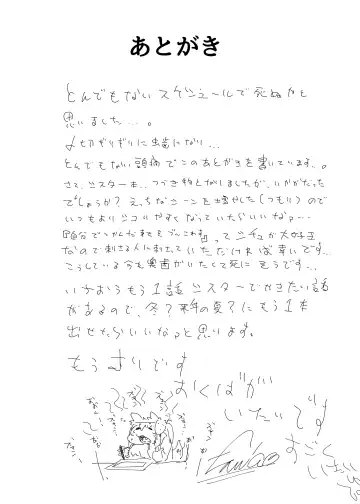 あとがき
とんでもないスケジュールで死ぬかと
思いました…。
〆切ぎりぎりに虫歯になり…
とんでもない頭痛でこのあとがきを書いています…。
さて、シスター本、つづき物となりましたが、いかがだった
でしょうか？えっちなシーンを増やした(つもり)ので
いつもよりシコりやすくなっていたらいいなっ…
って シチュが大好き
なので刺さる人に刺さって いただければ幸いです…
こうしている今も奥歯がいたくて死にそうです…
いちおうもう1話シスターでかきたい話
があるので、冬？来年の夏？にもう1本
出せたらいいなっと思います。
もうムリです
おくばが
いたいです
すごく
いたい